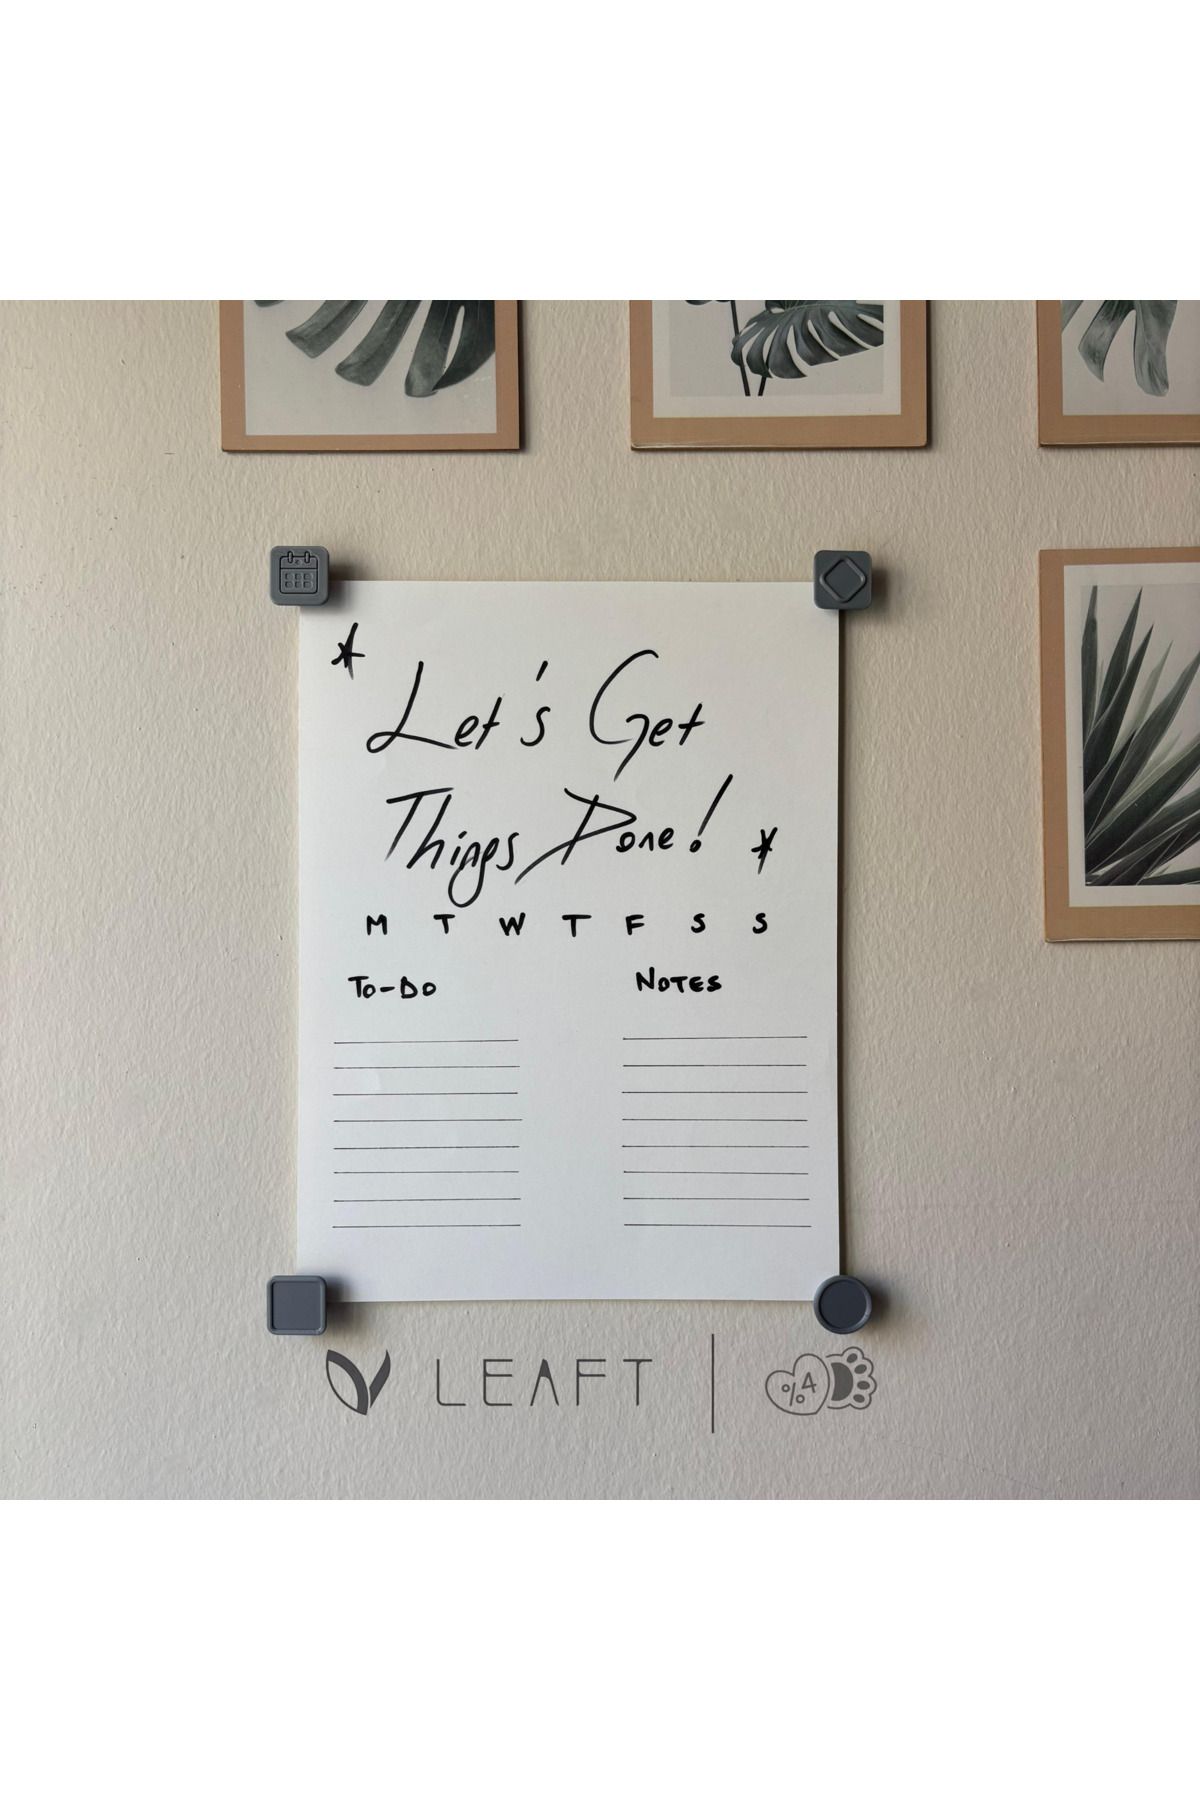 Let's Get
Things Done!
M T W T F S S
To-Do
Notes
LEAFT
%4